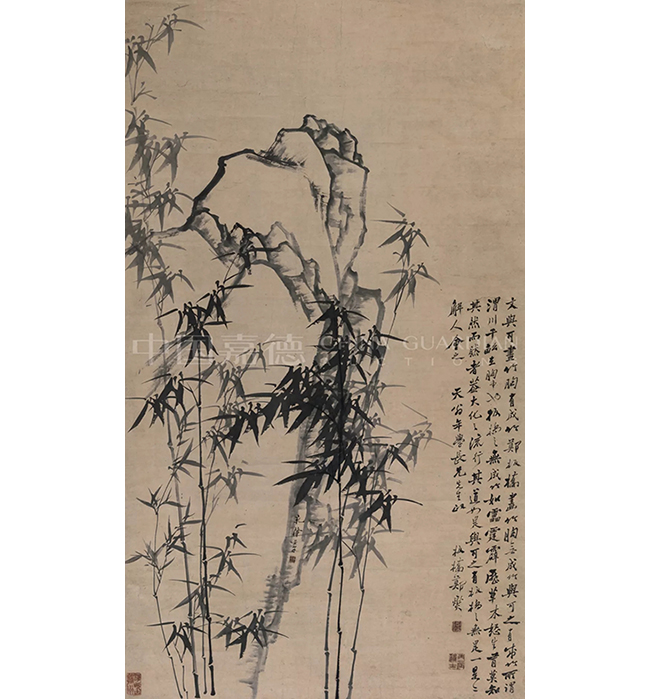 文與可畫竹胸有成竹鄭板橋畫竹胸無成竹與可之有成竹所謂
渭川千畝在胸中也板橋之無成竹如雷霆霹靂草木怒生有莫知
其然而然者蓋大化之流行其道如是與可之有板橋之無是一是二
解人會之 天翁年學長兄先生正
板橋鄭燮
中国嘉德
GUARDIAN